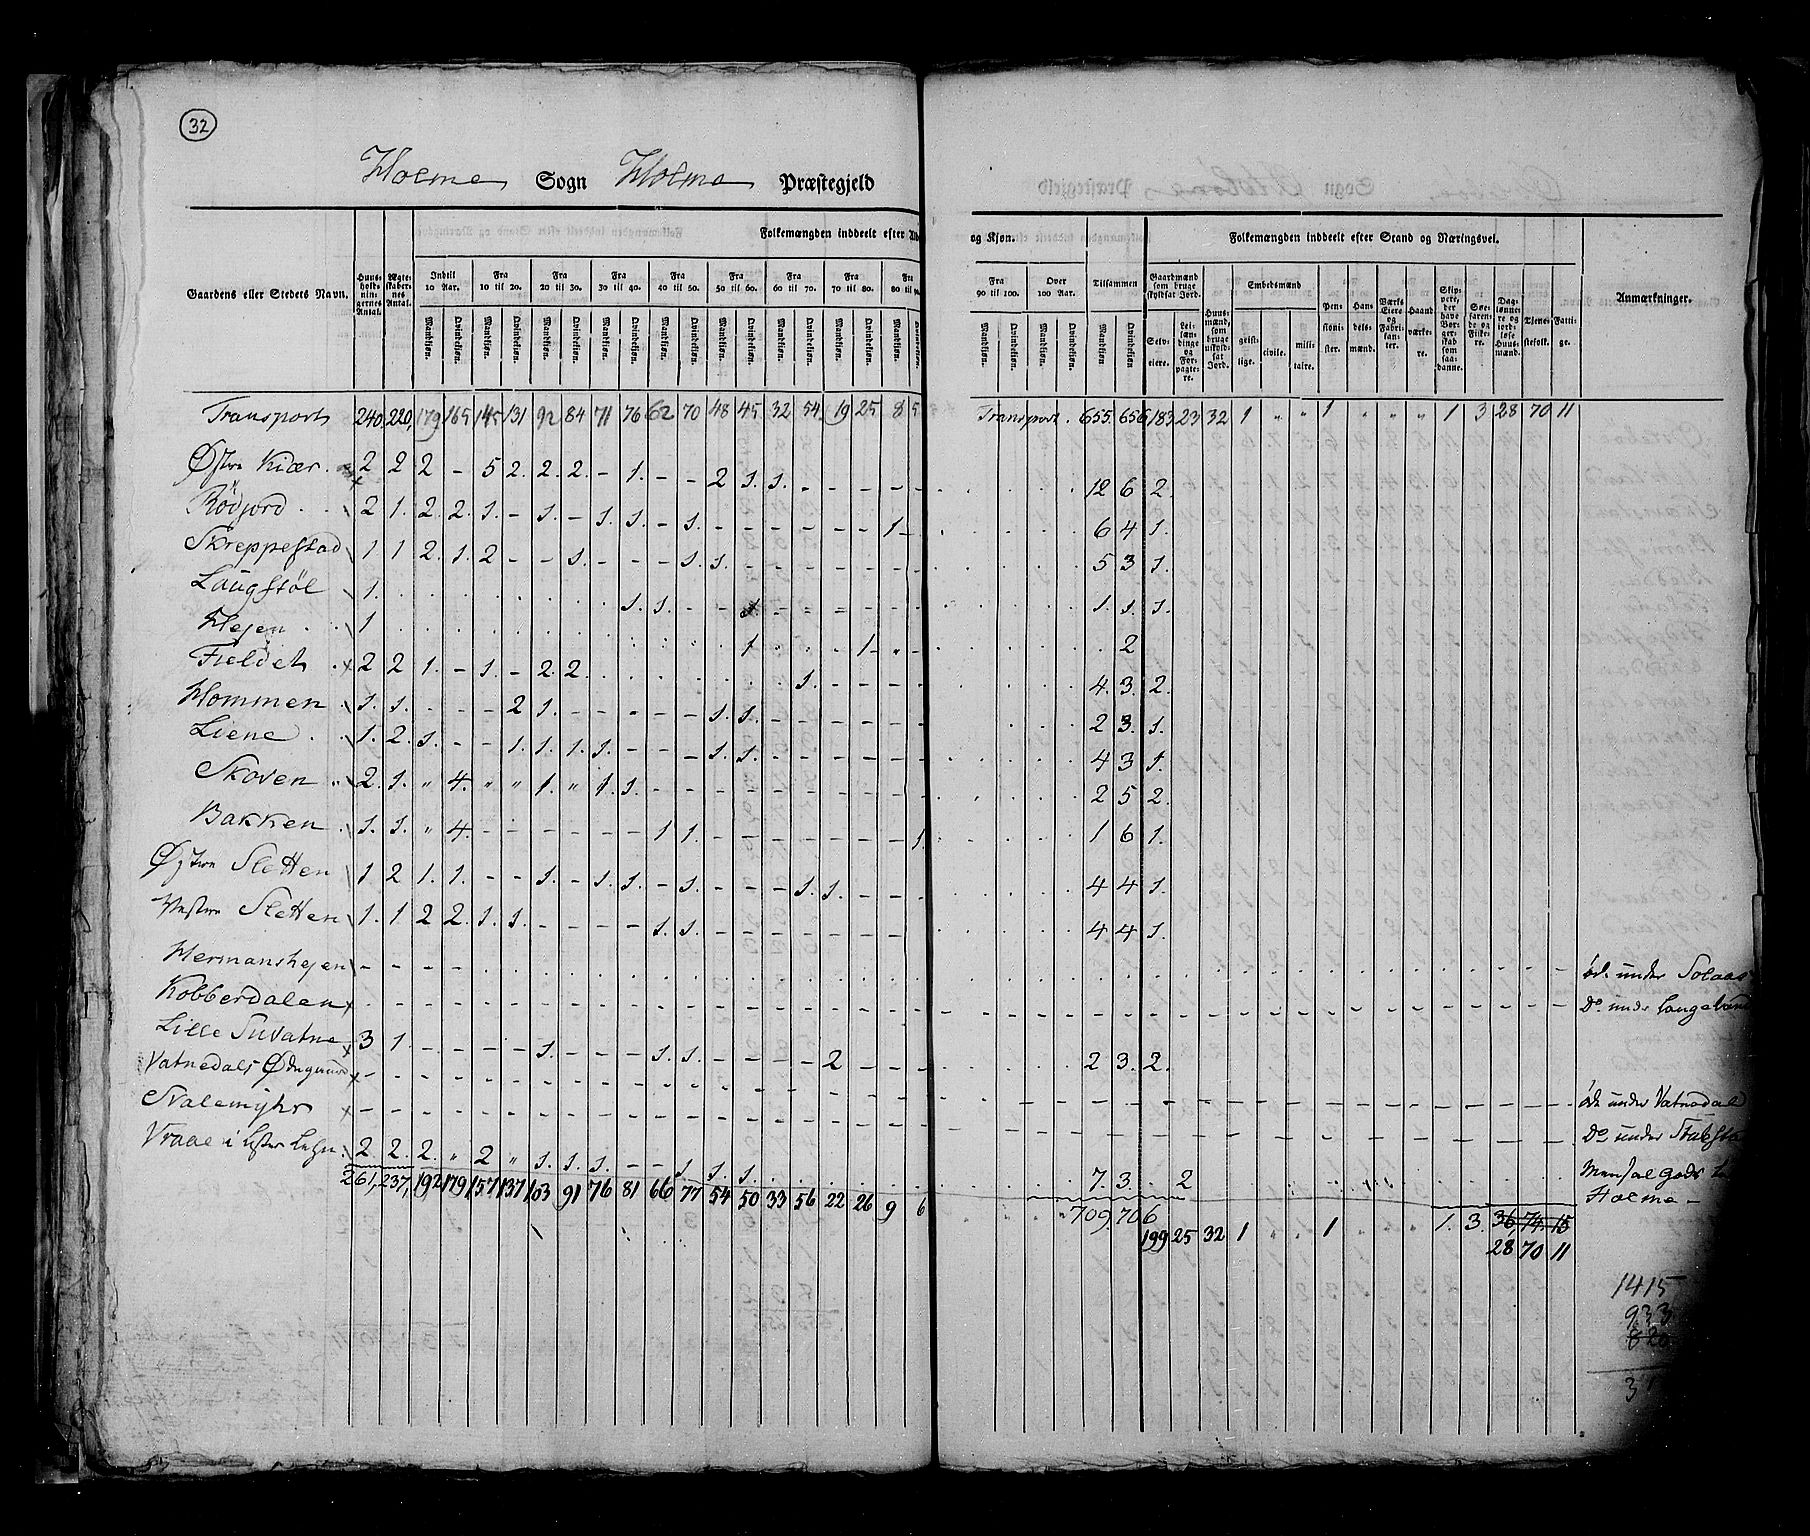 32
Holme Sogn Holme Præstegjeld
Gaardens eller Stedets Navn. Huus-holdningernes Antal. Ægteskabernes Antal. Folkemængden inddeelt efter Al
og Kjøn. Folkemængden inddeelt efter Stand og Næringsvei. Anmærkninger.
Indtil 10 Aar. Fra 10 til 20. Fra 20 til 30. Fra 30 til 40. Fra 40 til 50. Fra 50 til 60. Fra 60 til 70. Fra 70 til 80. Fra 80 til 90.
Fra 90 til 100. Over 100 Aar. Tilsammen Gaardmænd som bruge skyldsat Jord. Huusmænd, som bruge uskyldsat Jord. Embedsmænd Pensionister. Handelsmænd. Værks Eiere og Fabrikanter. Haandværkere. Skippere, der have Borgerskab som saadanne. Søefarende og Fiskere. Daglønnere og jordløse Huusmænd. Tjenestefolk. Fattige.
Mandkjøn. Qvindekjøn. Mandkjøn. Qvindekjøn. Mandkjøn. Qvindekjøn. Mandkjøn. Qvindekjøn. Mandkjøn. Qvindekjøn. Mandkjøn. Qvindekjøn. Mandkjøn. Qvindekjøn. Mandkjøn. Qvindekjøn. Mandkjøn. Qvindekjøn.
Mandkjøn. Qvindekjøn. Mandkjøn. Qvindekjøn. Mandkjøn. Qvindekjøn. Selveiere. Leilændinge og Forpagtere. geistlige. civile. militaire.
Transport 240. 220. 179 165 145 131 92 84 71 76 62 70 48 45 32 54 19 25 8 5 Transport. 655. 656 183 23 32 1 „ „ 1 „ „ „ 1 3 28 70 11
Østre Kiær. 2 2 2 - 5 2. 2. 2. - 1. - - 2 1. 1. - - - - - 12 6 2.
Rödjord 2 1. 2. 2. 1. - 1. - 1. 1. - 1. - - - - - - 1 - 6 4 1.
Skreppestad 1 1 2. 1. 2 - - 1. - - - 1. 1. - - - - - - - 5 3 1.
Laugstøl 1. 1. 1. - - 1. - - - - - - 1. 1. 1.
Hejen 1 1 1 - „ - 2
Fieldet 2 2 1. - 1. - 2. 2. 1. 4. 3. 2.
Hommen 1. 1. - - - 2 1. - - - - - 1. 1. - - - - - - 2 3. 1.
Liene 1. 2. 1. - - 1. 1. 1. 1. - - - 1. 1. - - - - - - 4 3 1.
Skoven 2. 1. „ 4. „ „ 1. „ 1. 1. - - - - - - - - - - 2 5 2.
Bakken 1. 1. „ 4. - - - - - - 1 1. - - - - - - - 1. 1 6 1.
Østre Sletten 1 2 1. 1. - - 1. - 1. 1. - 1. - - - 1. 1. - - - 4 4 1.
Vestre Sletten 1. 1 2 2. 1. 1. - - - - 1. 1. - - - - - - - - 4 4 1.
Hermanshejen - - - - øde under Solaas
Kobberdalen Do. under
Lille Suvatne 3 1. - - - - 1. - - - 1. 1. - - - - 2 - - - 2 3. 2.
Vatnedals - - øde under Vatnedal
Svalemyhr - - Do under
Vraae i Lister 2 2. 2. „ 2 „ 1. 1. 1. - - 1 1 1. 7. 3. 2 Mensal Gods
Holme -
261, 237, 192 179 157 137 103 91 76 81 66 77 54 50 33 56 22 26 9 6 709. 706
199 25 32 1 „ „ 1 1. 3. 36, 74. 15
28 70 11
1415
933